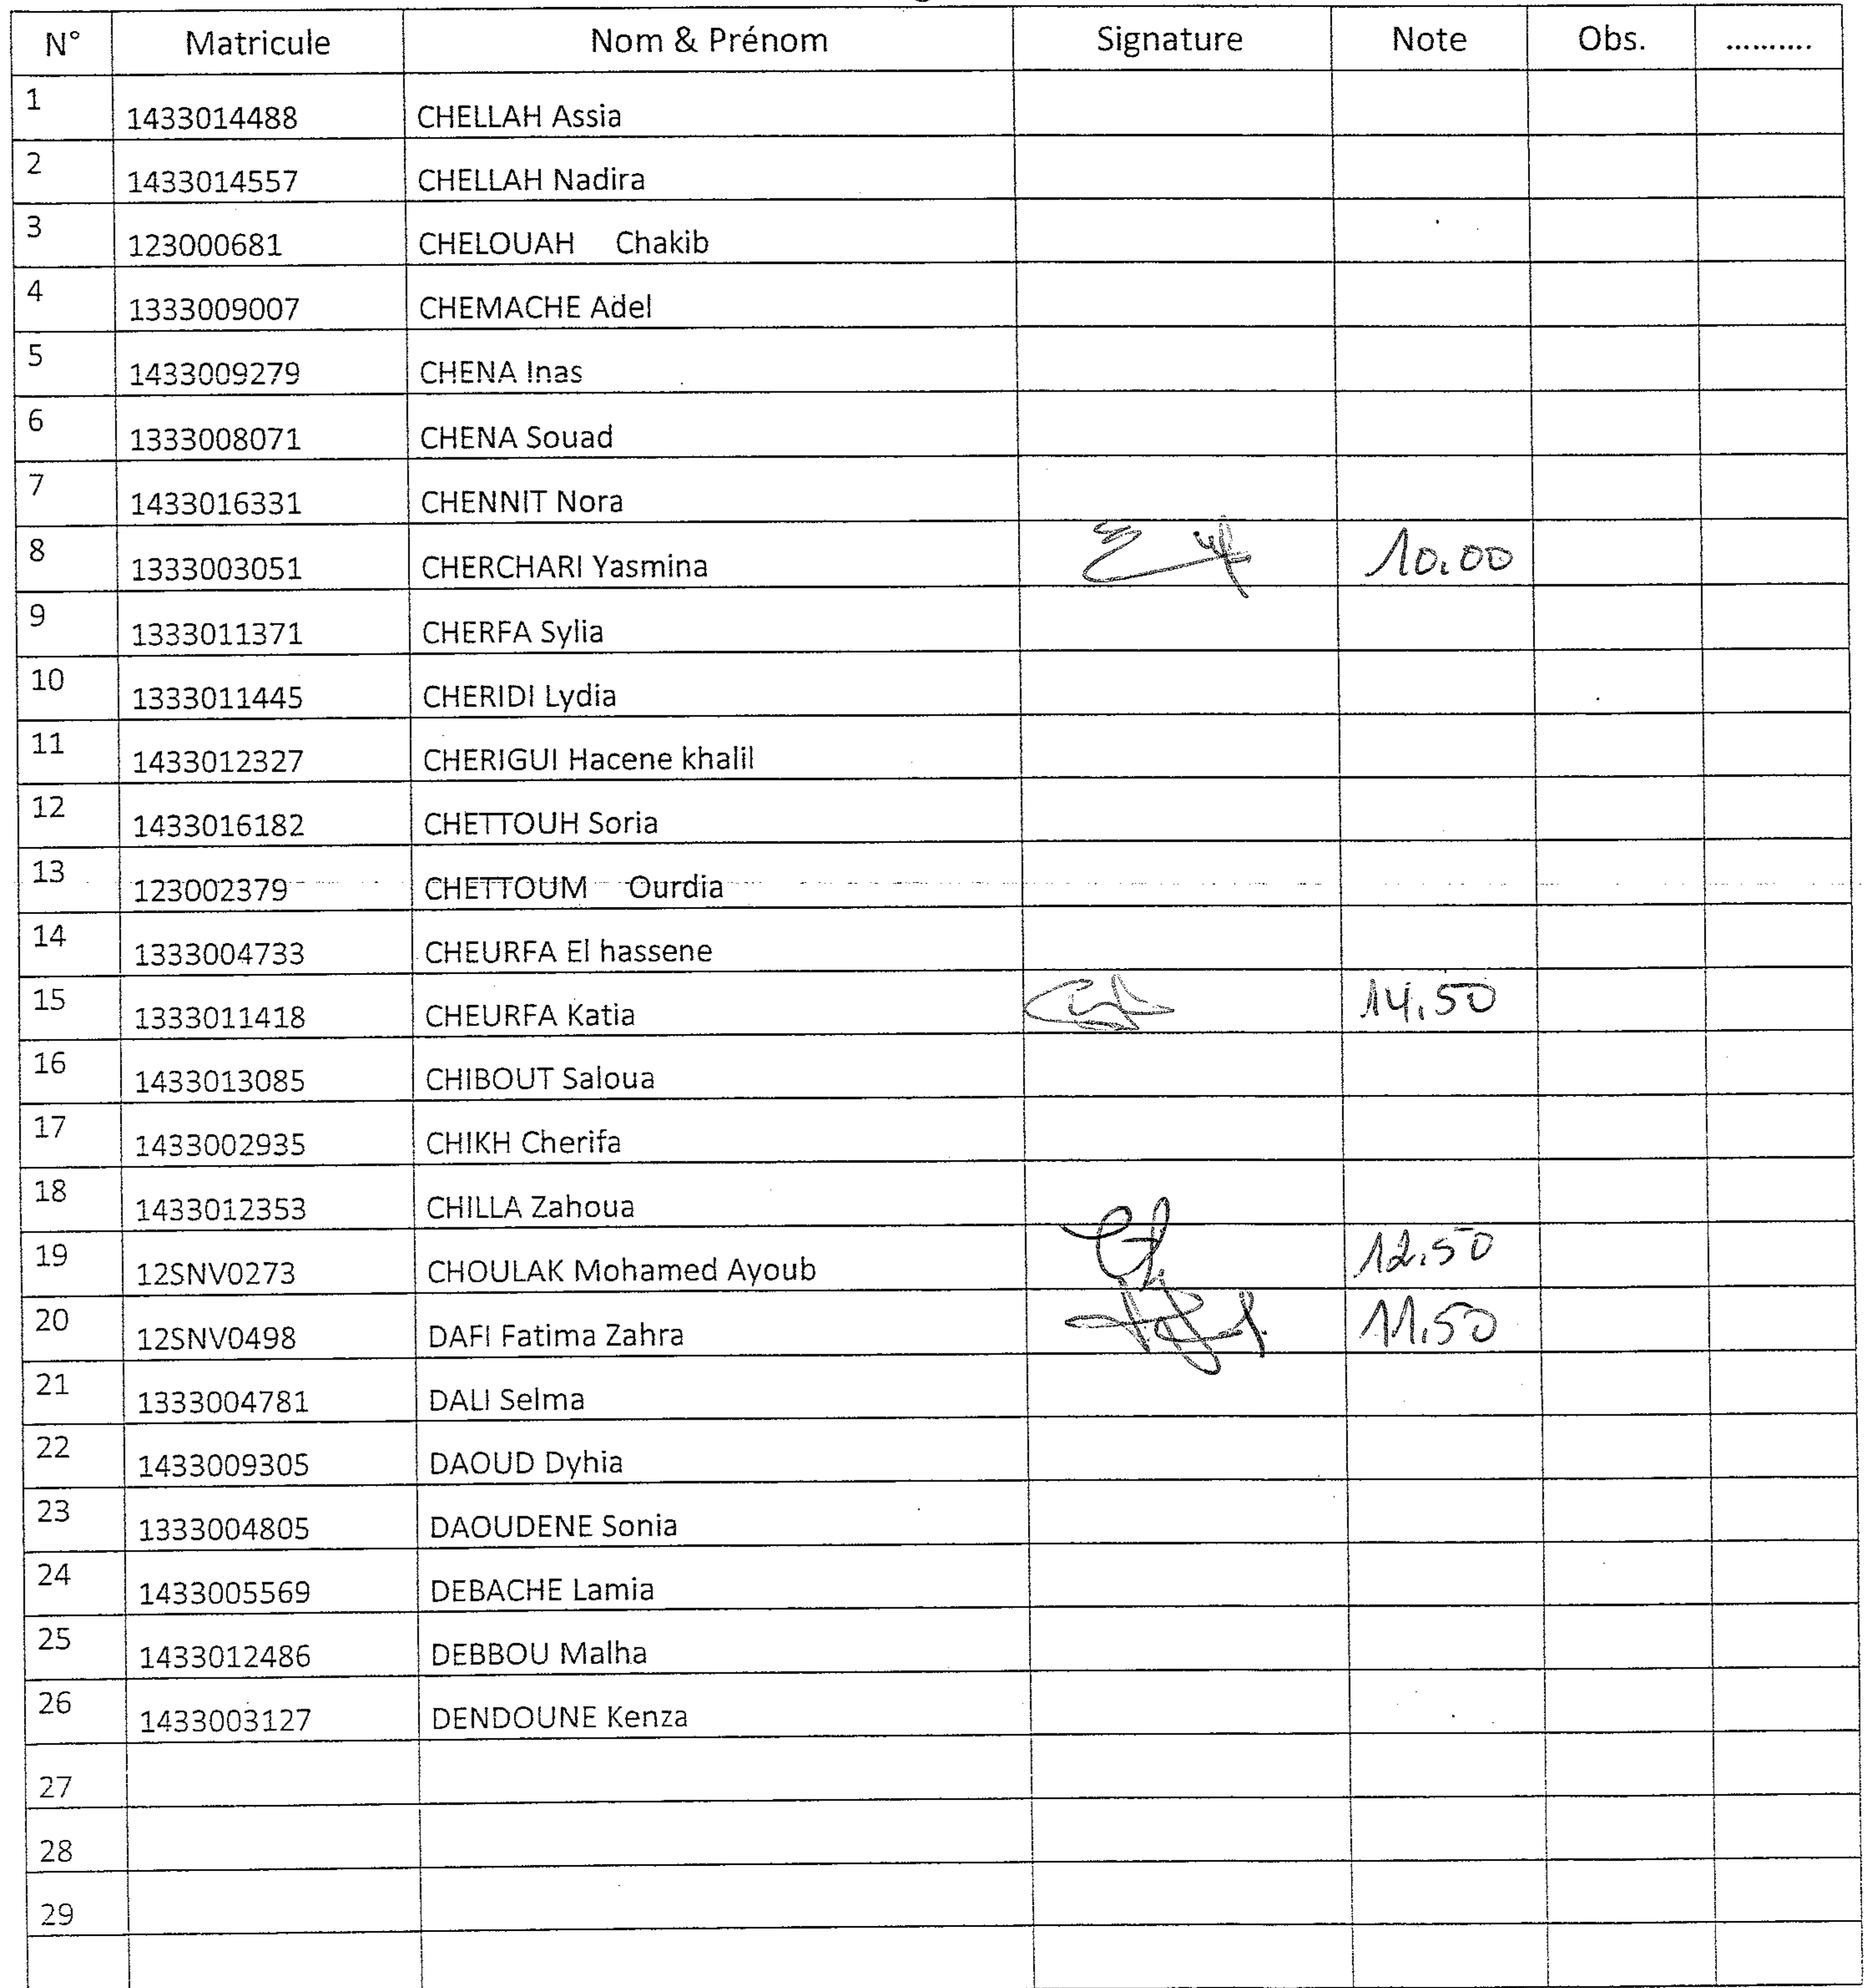 N° Matricule Nom & Prénom Signature Note Obs. ..........
1 1433014488 CHELLAH Assia
2 1433014557 CHELLAH Nadira
3 123000681 CHELOUAH Chakib
4 1333009007 CHEMACHE Adel
5 1433009279 CHENA Inas
6 1333008071 CHENA Souad
7 1433016331 CHENNIT Nora
8 1333003051 CHERCHARI Yasmina 10.00
9 1333011371 CHERFA Sylia
10 1333011445 CHERIDI Lydia
11 1433012327 CHERIGUI Hacene khalil
12 1433016182 CHETTOUH Soria
13 123002379 CHETTOUM Ourdia
14 1333004733 CHEURFA El hassene
15 1333011418 CHEURFA Katia 14,50
16 1433013085 CHIBOUT Saloua
17 1433002935 CHIKH Cherifa
18 1433012353 CHILLA Zahoua
19 12SNV0273 CHOULAK Mohamed Ayoub 12.50
20 12SNV0498 DAFI Fatima Zahra 11,50
21 1333004781 DALI Selma
22 1433009305 DAOUD Dyhia
23 1333004805 DAOUDENE Sonia
24 1433005569 DEBACHE Lamia
25 1433012486 DEBBOU Malha
26 1433003127 DENDOUNE Kenza
27
28
29